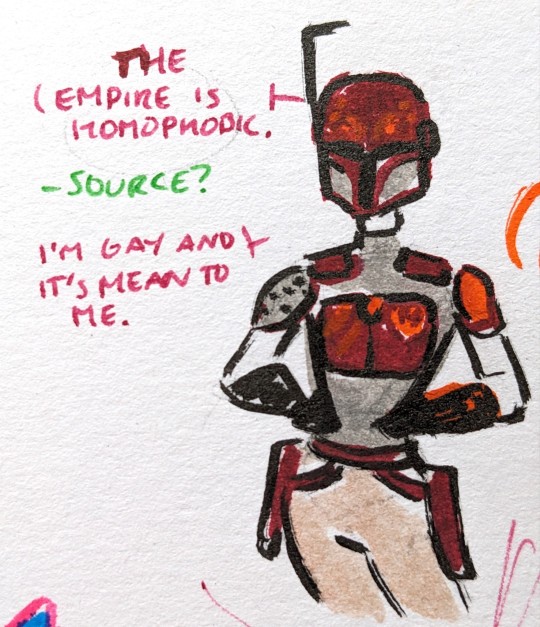 THE
EMPIRE IS
HOMOPHOBIC.
- SOURCE?
I'M GAY AND
IT'S MEAN TO
ME.